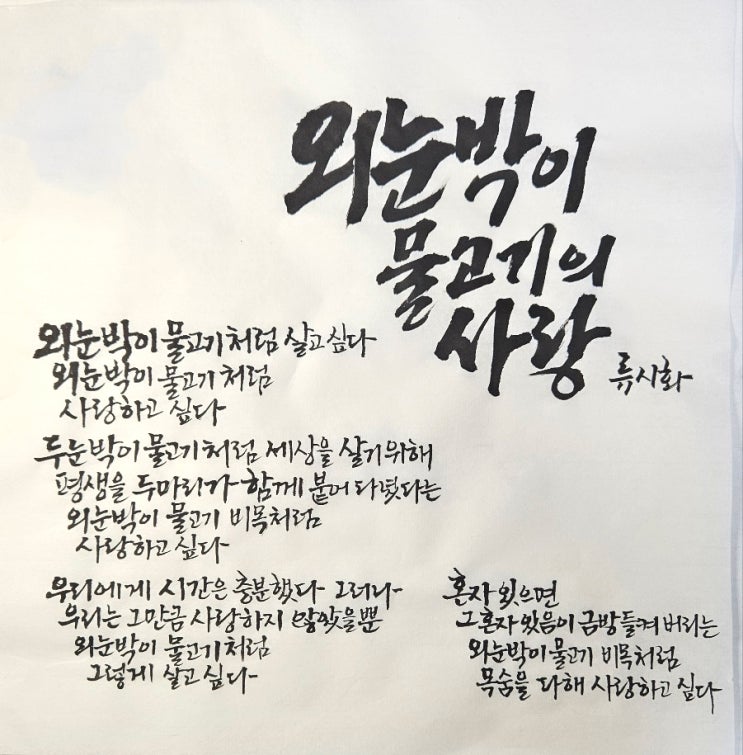 외눈박이
물고기의
사랑
류시화
외눈박이 물고기처럼 살고 싶다
외눈박이 물고기처럼
사랑하고 싶다
두눈박이 물고기처럼 세상을 살기 위해
평생을 두마리가 함께 붙어 다녔다는
외눈박이 물고기 비목처럼
사랑하고 싶다
우리에게 시간은 충분했다 그러나
우리는 그만큼 사랑하지 않았을뿐
외눈박이 물고기처럼
그렇게 살고 싶다
혼자 있으면
그 혼자 있음이 금방 들켜 버리는
외눈박이 물고기 비목처럼
목숨을 다해 사랑하고 싶다